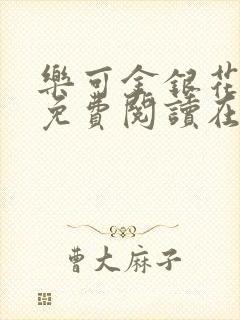 樂可金銀花
免費閱讀在
曹大麻子